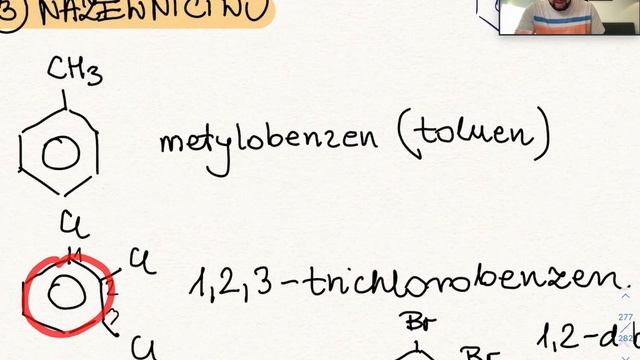 3) NAZEWNICTWO
CH3
metylobenzen (toluen)
Cl
Cl
1,2,3-trichlorobenzen.
Cl
Br
Br
1,2-d
277
282